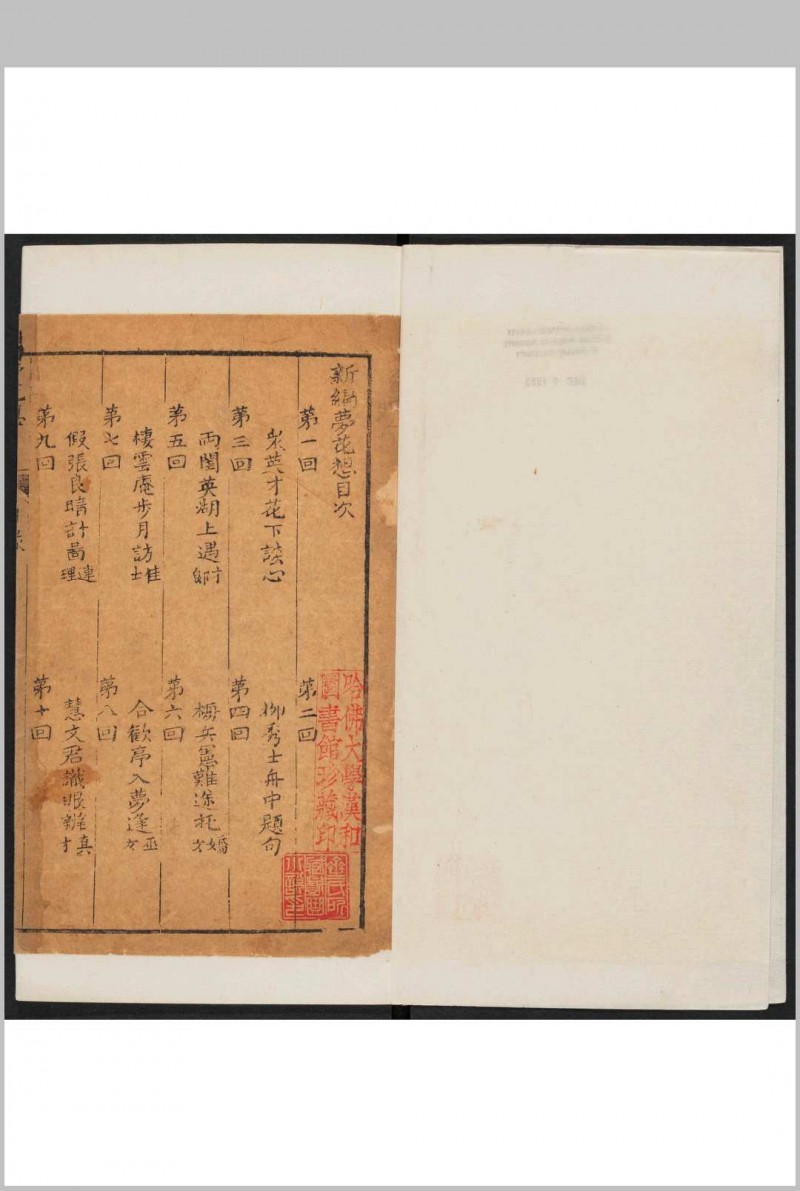 新編夢花想目次
第一回
衆英才花下談心
第二回
柳秀士舟中題句
第三回
兩閨英湖上遇才郎
第四回
梅兵憲難途托嬌女
第五回
棲雲庵步月訪佳士
第六回
合歡亭入夢逢巫女
第七回
假張良暗計啚連理
第八回
慧文君識眼辨真才
第九回
第十回
哈佛大學漢和
圖書館珍藏印